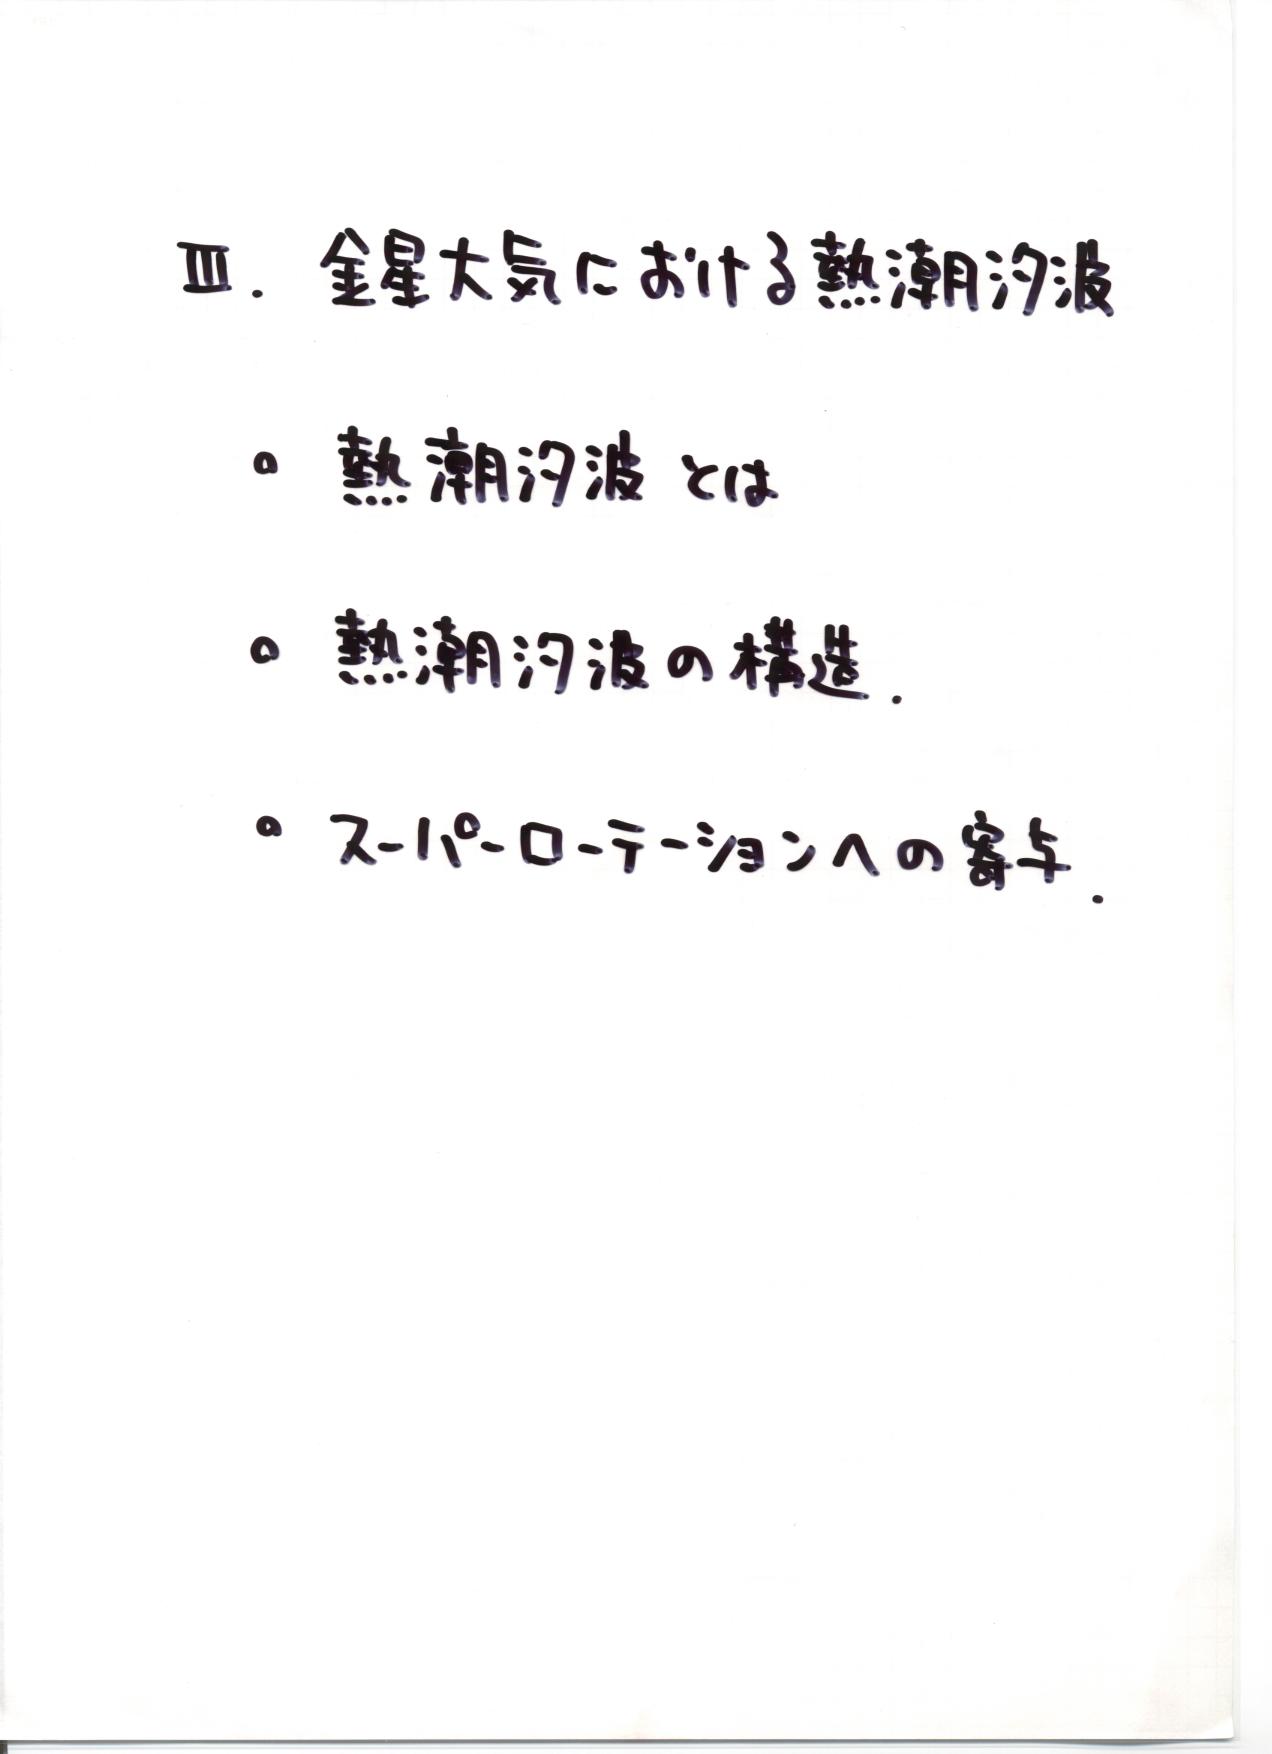 Ⅲ. 金星大気における熱潮汐波
。熱潮汐波とは
。熱潮汐波の構造.
。スーパーローテーションへの寄与.